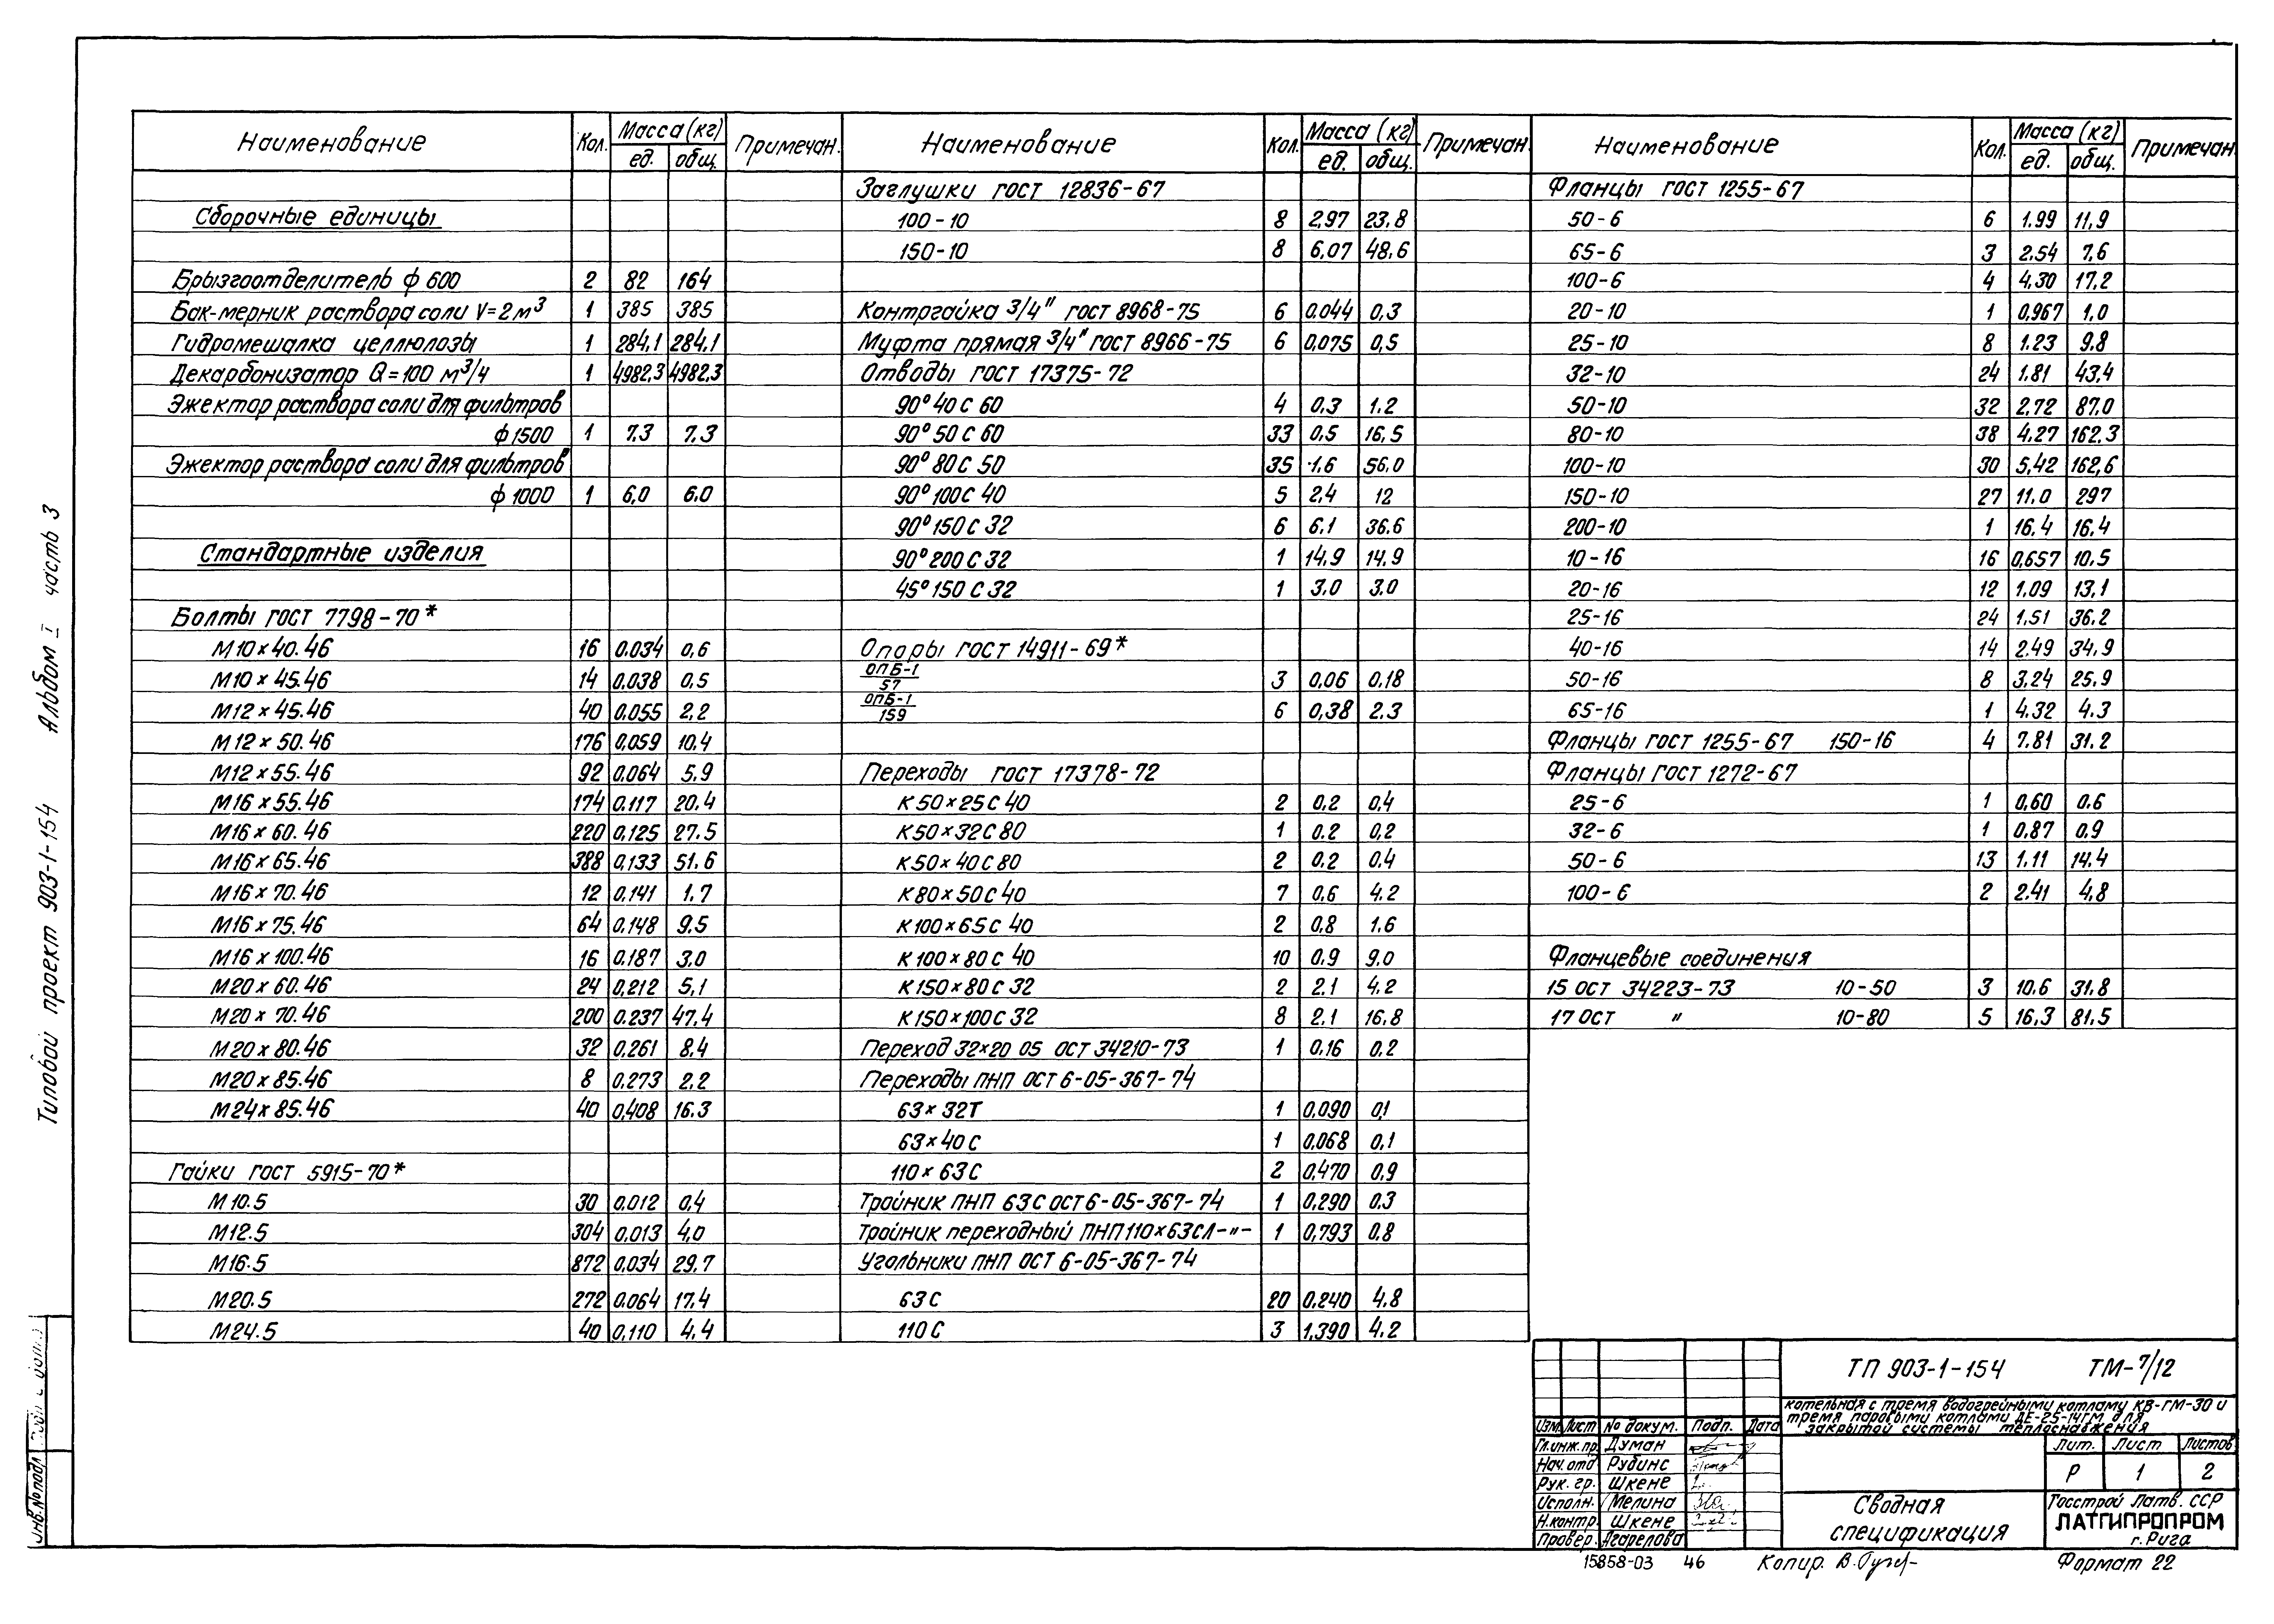 Наименование Кол. Масса (кг) Примечан.
ед. общ.
Сборочные единицы
Брызгоотделитель ф 600 2 82 164
Бак-мерник раствора соли V=2м³ 1 385 385
Гидромешалка целлюлозы 1 284,1 284,1
Декарбонизатор Q=100 м³/ч 1 4982,3 4982,3
Эжектор раствора соли для фильтров
ф 1500 1 7.3 7.3
Эжектор раствора соли для фильтров
ф 1000 1 6,0 6.0
Стандартные изделия
Болты ГОСТ 7798-70*
М10×40.46 16 0.034 0,6
М10×45.46 14 0.038 0,5
М12×45.46 40 0.055 2,2
М12×50.46 176 0.059 10.4
М12×55.46 92 0.064 5,9
М16×55.46 174 0.117 20.4
М16×60.46 220 0.125 27.5
М16×65.46 388 0,133 51.6
М16×70.46 12 0,141 1.7
М16×75.46 64 0.148 9.5
М16×100.46 16 0.187 3.0
М20×60.46 24 0,212 5,1
М20×70.46 200 0.237 47.4
М20×80.46 32 0.261 8.4
М20×85.46 8 0,273 2.2
М24×85.46 40 0,408 16.3
Гайки ГОСТ 5915-70*
М10.5 30 0,012 0,4
М12.5 304 0,013 4,0
М16.5 872 0.034 29.7
М20.5 272 0.064 17.4
М24.5 40 0,110 4.4
Наименование Кол. Масса (кг) Примечан.
ед. общ.
Заглушки ГОСТ 12836-67
100-10 8 2,97 23.8
150-10 8 6,07 48.6
Контргайка 3/4" ГОСТ 8968-75 6 0.044 0,3
Муфта прямая 3/4" ГОСТ 8966-75 6 0,075 0,5
Отводы ГОСТ 17375-72
90° 40 С 60 4 0,3 1.2
90° 50 С 60 33 0.5 16,5
90° 80 С 50 35 1.6 56.0
90° 100 С 40 5 2,4 12
90° 150 С 32 6 6.1 36.6
90° 200 С 32 1 14.9 14.9
45° 150 С 32 1 3.0 3.0
Опоры ГОСТ 14911-69*
ОПБ-1/57 3 0,06 0.18
ОПБ-1/159 6 0,38 2.3
Переходы ГОСТ 17378-72
К50×25С 40 2 0.2 0,4
К50×32С 80 1 0.2 0,2
К50×40С 80 2 0.2 0.4
К80×50С 40 7 0,6 4.2
К100×65С 40 2 0,8 1.6
К100×80С 40 10 0.9 9.0
К150×80С 32 2 2.1 4.2
К150×100С 32 8 2.1 16.8
Переход 32×20 05 ОСТ 34210-73 1 0,16 0.2
Переходы ПНП ОСТ 6-05-367-74
63×32Т 1 0,090 0,1
63×40С 1 0,068 0,1
110×63С 2 0,470 0,9
Тройник ПНП 63С ОСТ 6-05-367-74 1 0,290 0.3
Тройник переходный ПНП 110×63СЛ-"- 1 0,793 0.8
Угольники ПНП ОСТ 6-05-367-74
63С 20 0,240 4.8
110С 3 1,390 4.2
Наименование Кол. Масса (кг) Примечан.
ед. общ.
Фланцы ГОСТ 1255-67
50-6 6 1.99 11,9
65-6 3 2.54 7,6
100-6 4 4,30 17.2
20-10 1 0,967 1,0
25-10 8 1.23 9.8
32-10 24 1.81 43,4
50-10 32 2,72 87,0
80-10 38 4,27 162.3
100-10 30 5,42 162,6
150-10 27 11.0 297
200-10 1 16.4 16.4
10-16 16 0,657 10.5
20-16 12 1.09 13,1
25-16 24 1,51 36.2
40-16 14 2.49 34.9
50-16 8 3.24 25.9
65-16 1 4.32 4.3
Фланцы ГОСТ 1255-67 150-16 4 7.81 31.2
Фланцы ГОСТ 1272-67
25-6 1 0,60 0.6
32-6 1 0,87 0.9
50-6 13 1.11 14.4
100-6 2 2.41 4,8
Фланцевые соединения
15 ОСТ 34223-73 10-50 3 10.6 31.8
17 ОСТ " 10-80 5 16,3 81.5
Типовой проект 903-1-154 Альбом I часть 3
Инв.№подл.
ТП 903-1-154 ТМ-7/12
Котельная с тремя водогрейными котлами КВ-ГМ-30 и
тремя паровыми котлами ДЕ-25-14ГМ для
закрытой системы теплоснабжения
Изм. Лист № докум. Подп. Дата
Гл.инж.пр. Думан
Нач.отд Рубинс
Рук. гр. Шкене
Исполн. Мелина
Н.контр. Шкене
Провер. Агарелова
Лит. Лист Листов
Р 1 2
Сводная
спецификация
Госстрой Латв. ССР
ЛАТГИПРОПРОМ
г. Рига
15858-03 46 Копир. Формат 22